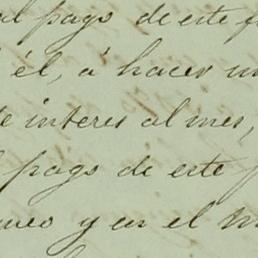 al pago de este
él, á hacer un
de interes al mes,
pago de este
y en el